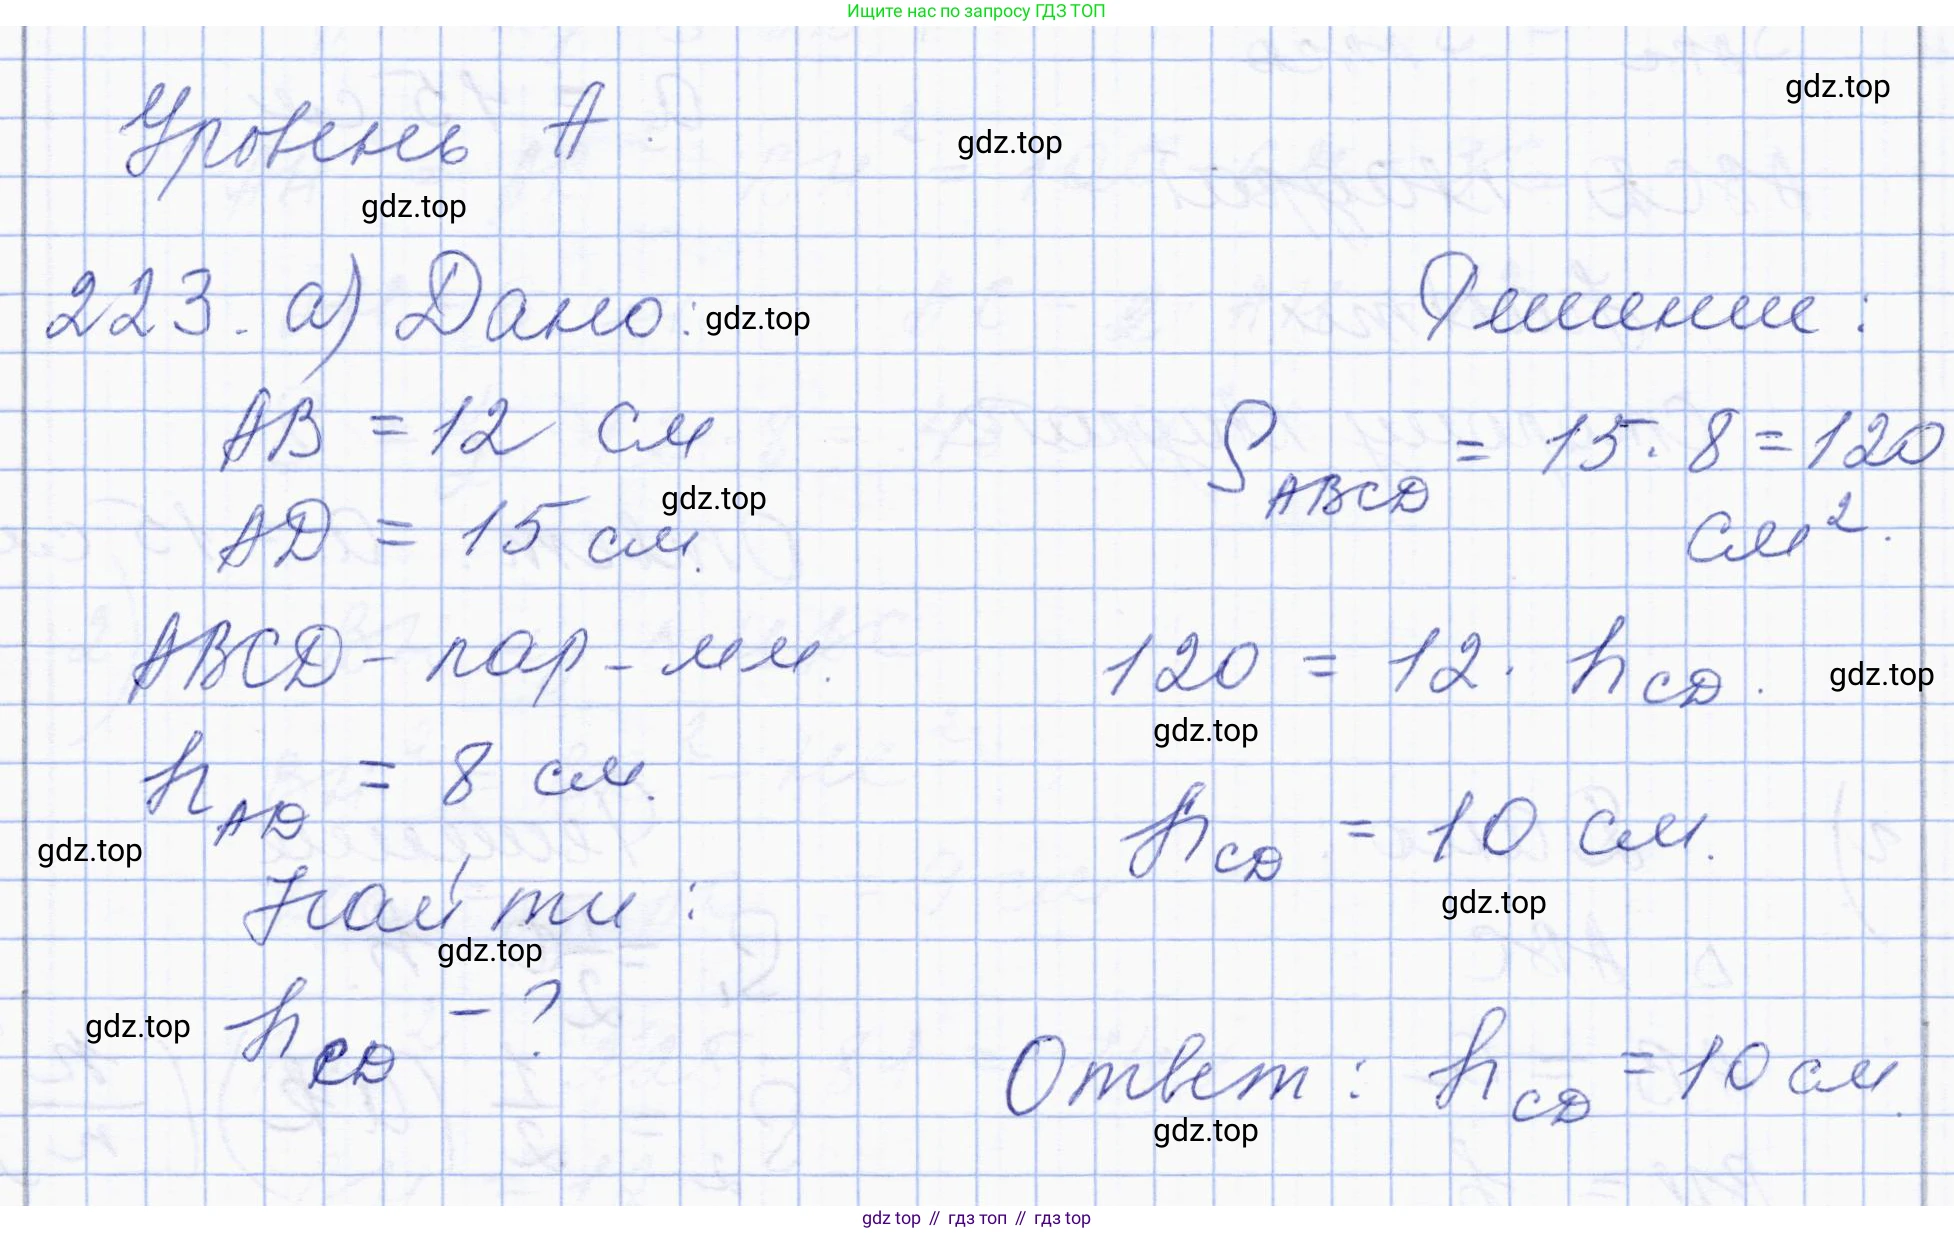 Ищите нас по запросу ГДЗ ТОП
gdz.top
Уровень А.
gdz.top
gdz.top
223. а) Дано:
gdz.top
AB = 12 см
AD = 15 см.
gdz.top
ABCD - пар-мм.
h AD = 8 см.
gdz.top
Найти:
gdz.top
h CD - ?
gdz.top
Решение:
S ABCD = 15 · 8 = 120
см².
120 = 12 · h CD.
gdz.top
gdz.top
h CD = 10 см.
gdz.top
Ответ: h CD = 10 см.
gdz.top
gdz top // гдз топ // гдз top